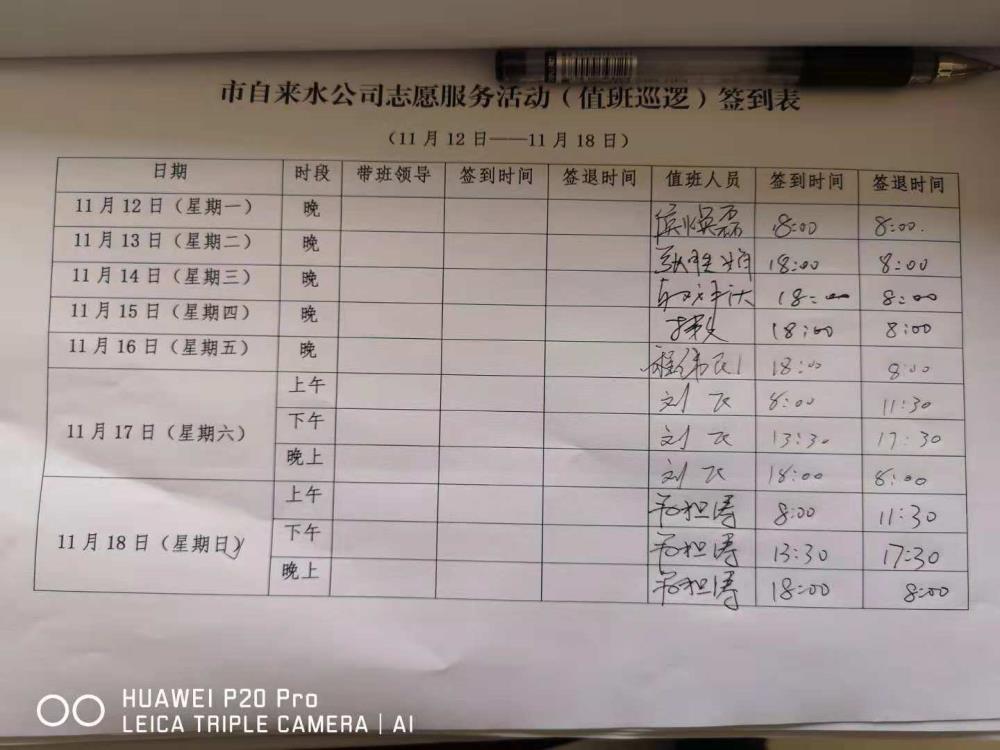 市自来水公司志愿服务活动（值班巡逻）签到表
（11月12日——11月18日）
日期 时段 带班领导 签到时间 签退时间 值班人员 签到时间 签退时间
11月12日（星期一） 晚 8:00 8:00.
11月13日（星期二） 晚 18:00 8:00
11月14日（星期三） 晚 18:00 8:00
11月15日（星期四） 晚 18:00 8:00
11月16日（星期五） 晚 18:00 8:00
上午 刘飞 8:00 11:30
11月17日（星期六） 下午 刘飞 13:30 17:30
晚上 刘飞 18:00 8:00
上午 8:00 11:30
11月18日（星期日） 下午 13:30 17:30
晚上 18:00 8:00
HUAWEI P20 Pro
LEICA TRIPLE CAMERA | AI